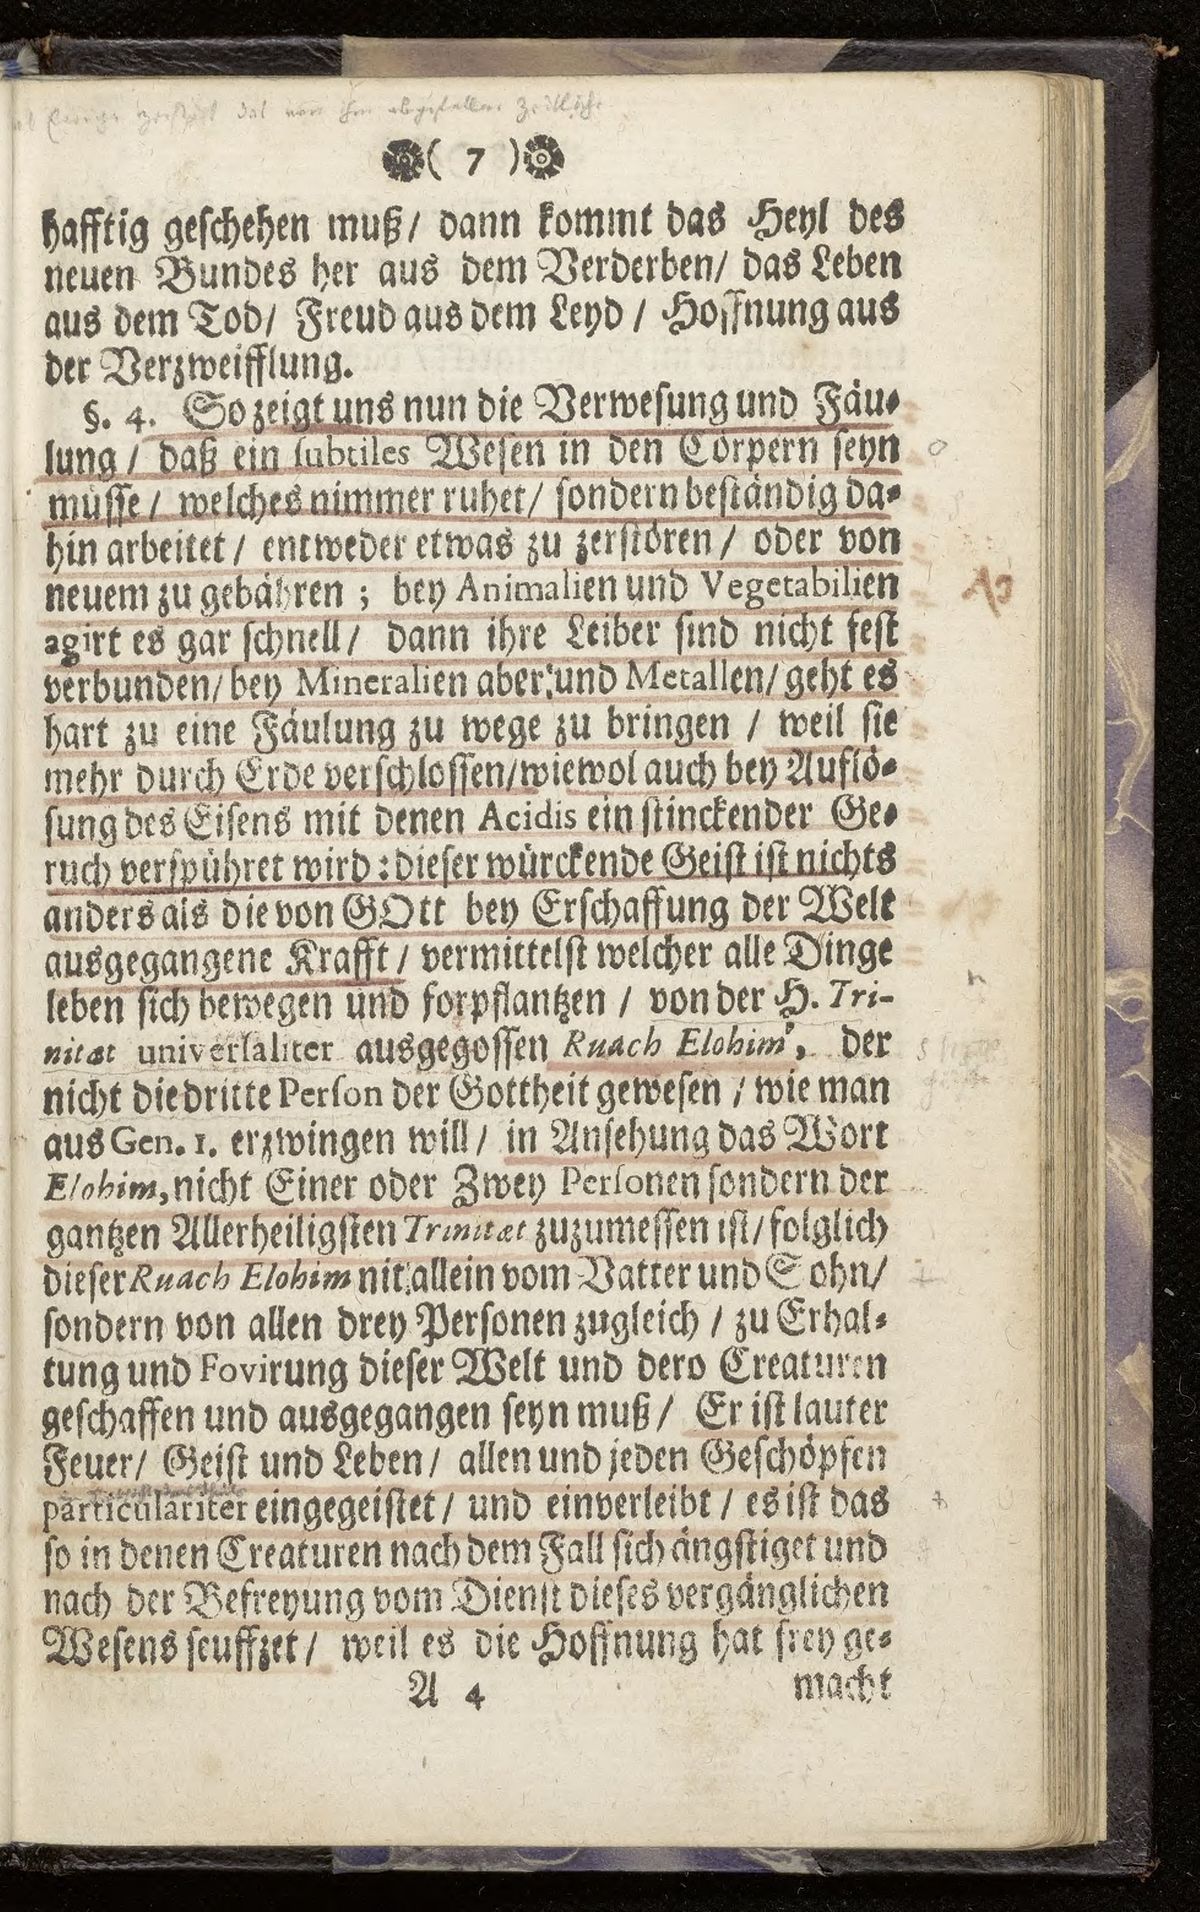 das von ihm abgefallene Zeitliche
( 7 )
hafftig geschehen muß/ dann kommt das Heyl des
neuen Bundes her aus dem Verderben/ das Leben
aus dem Tod/ Freud aus dem Leyd / Hoffnung aus
der Verzweifflung.
§. 4. So zeigt uns nun die Verwesung und Fäu-
lung / daß ein subtiles Wesen in den Cörpern seyn
müsse / welches nimmer ruhet/ sondern beständig da-
hin arbeitet / entweder etwas zu zerstören / oder von
neuem zu gebähren ; bey Animalien und Vegetabilien
agirt es gar schnell/ dann ihre Leiber sind nicht fest
verbunden/ bey Mineralien aber und Metallen/ geht es
hart zu eine Fäulung zu wege zu bringen / weil sie
mehr durch Erde verschlossen/ wiewol auch bey Auflö-
sung des Eisens mit denen Acidis ein stinckender Ge-
ruch verspühret wird : dieser würckende Geist ist nichts
anders als die von GOtt bey Erschaffung der Welt
ausgegangene Krafft / vermittelst welcher alle Dinge
leben sich bewegen und forpflantzen / von der H. Tri-
nitæt universaliter ausgegossen Ruach Elohim, der
nicht die dritte Person der Gottheit gewesen / wie man
aus Gen. 1. erzwingen will / in Ansehung das Wort
Elohim, nicht Einer oder Zwey Personen sondern der
gantzen Allerheiligsten Trinitæt zuzumessen ist/ folglich
dieser Ruach Elohim nit allein vom Vatter und Sohn/
sondern von allen drey Personen zugleich / zu Erhal-
tung und Fovirung dieser Welt und dero Creaturen
geschaffen und ausgegangen seyn muß / Er ist lauter
Feuer/ Geist und Leben / allen und jeden Geschöpfen
particulariter eingegeistet / und einverleibt / es ist das
so in denen Creaturen nach dem Fall sich ängstiget und
nach der Befreyung vom Dienst dieses vergänglichen
Wesens seuffzet / weil es die Hoffnung hat frey ge-
A 4 macht